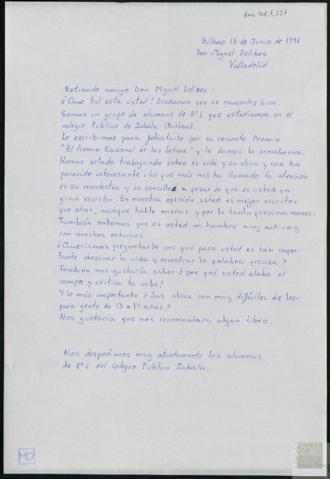 Bilbao 13 de Junio de 1991
Don Miguel Delibes
Valladolid
Estimado amigo Don Miguel Delibes:
¿Que tal está usted? Deseamos que se encuentre bien.
Somos un grupo de alumnos de 8º C que estudiamos en el
colegio Público de Zabala (Bilbao).
Le escribimos para felicitarle por su reciente Premio
"El Premio Nacional de las Letras" y le damos la enorabuena.
Hemos estado trabajando sobre su vida y su obra y nos ha
parecido interesante. Lo que más nos ha llamado la atención
es su modestia y su sencillez a pesar de que es usted un
gran escritor. En nuestra opinión usted es mejor escritor
que otros, aunque hable menos y por lo tanto presuma menos.
También sabemos que es usted un hombre muy activo y
con muchos estudios.
¿Querriamos preguntarle por qué para usted es tan impor-
tante observar la vida y encontrar la palabra precisa?
También nos gustaría saber ¿por qué usted alaba el
campo y critica la urbe?
Y lo más importante ¿Sus obras son muy difíciles de leer
para gente de 13 a 14 años?
Nos gustaría que nos recomendara algún libro.
Nos despedimos muy atentamente los alumnos
de 8º C del Colegio Público Zabala.
MD